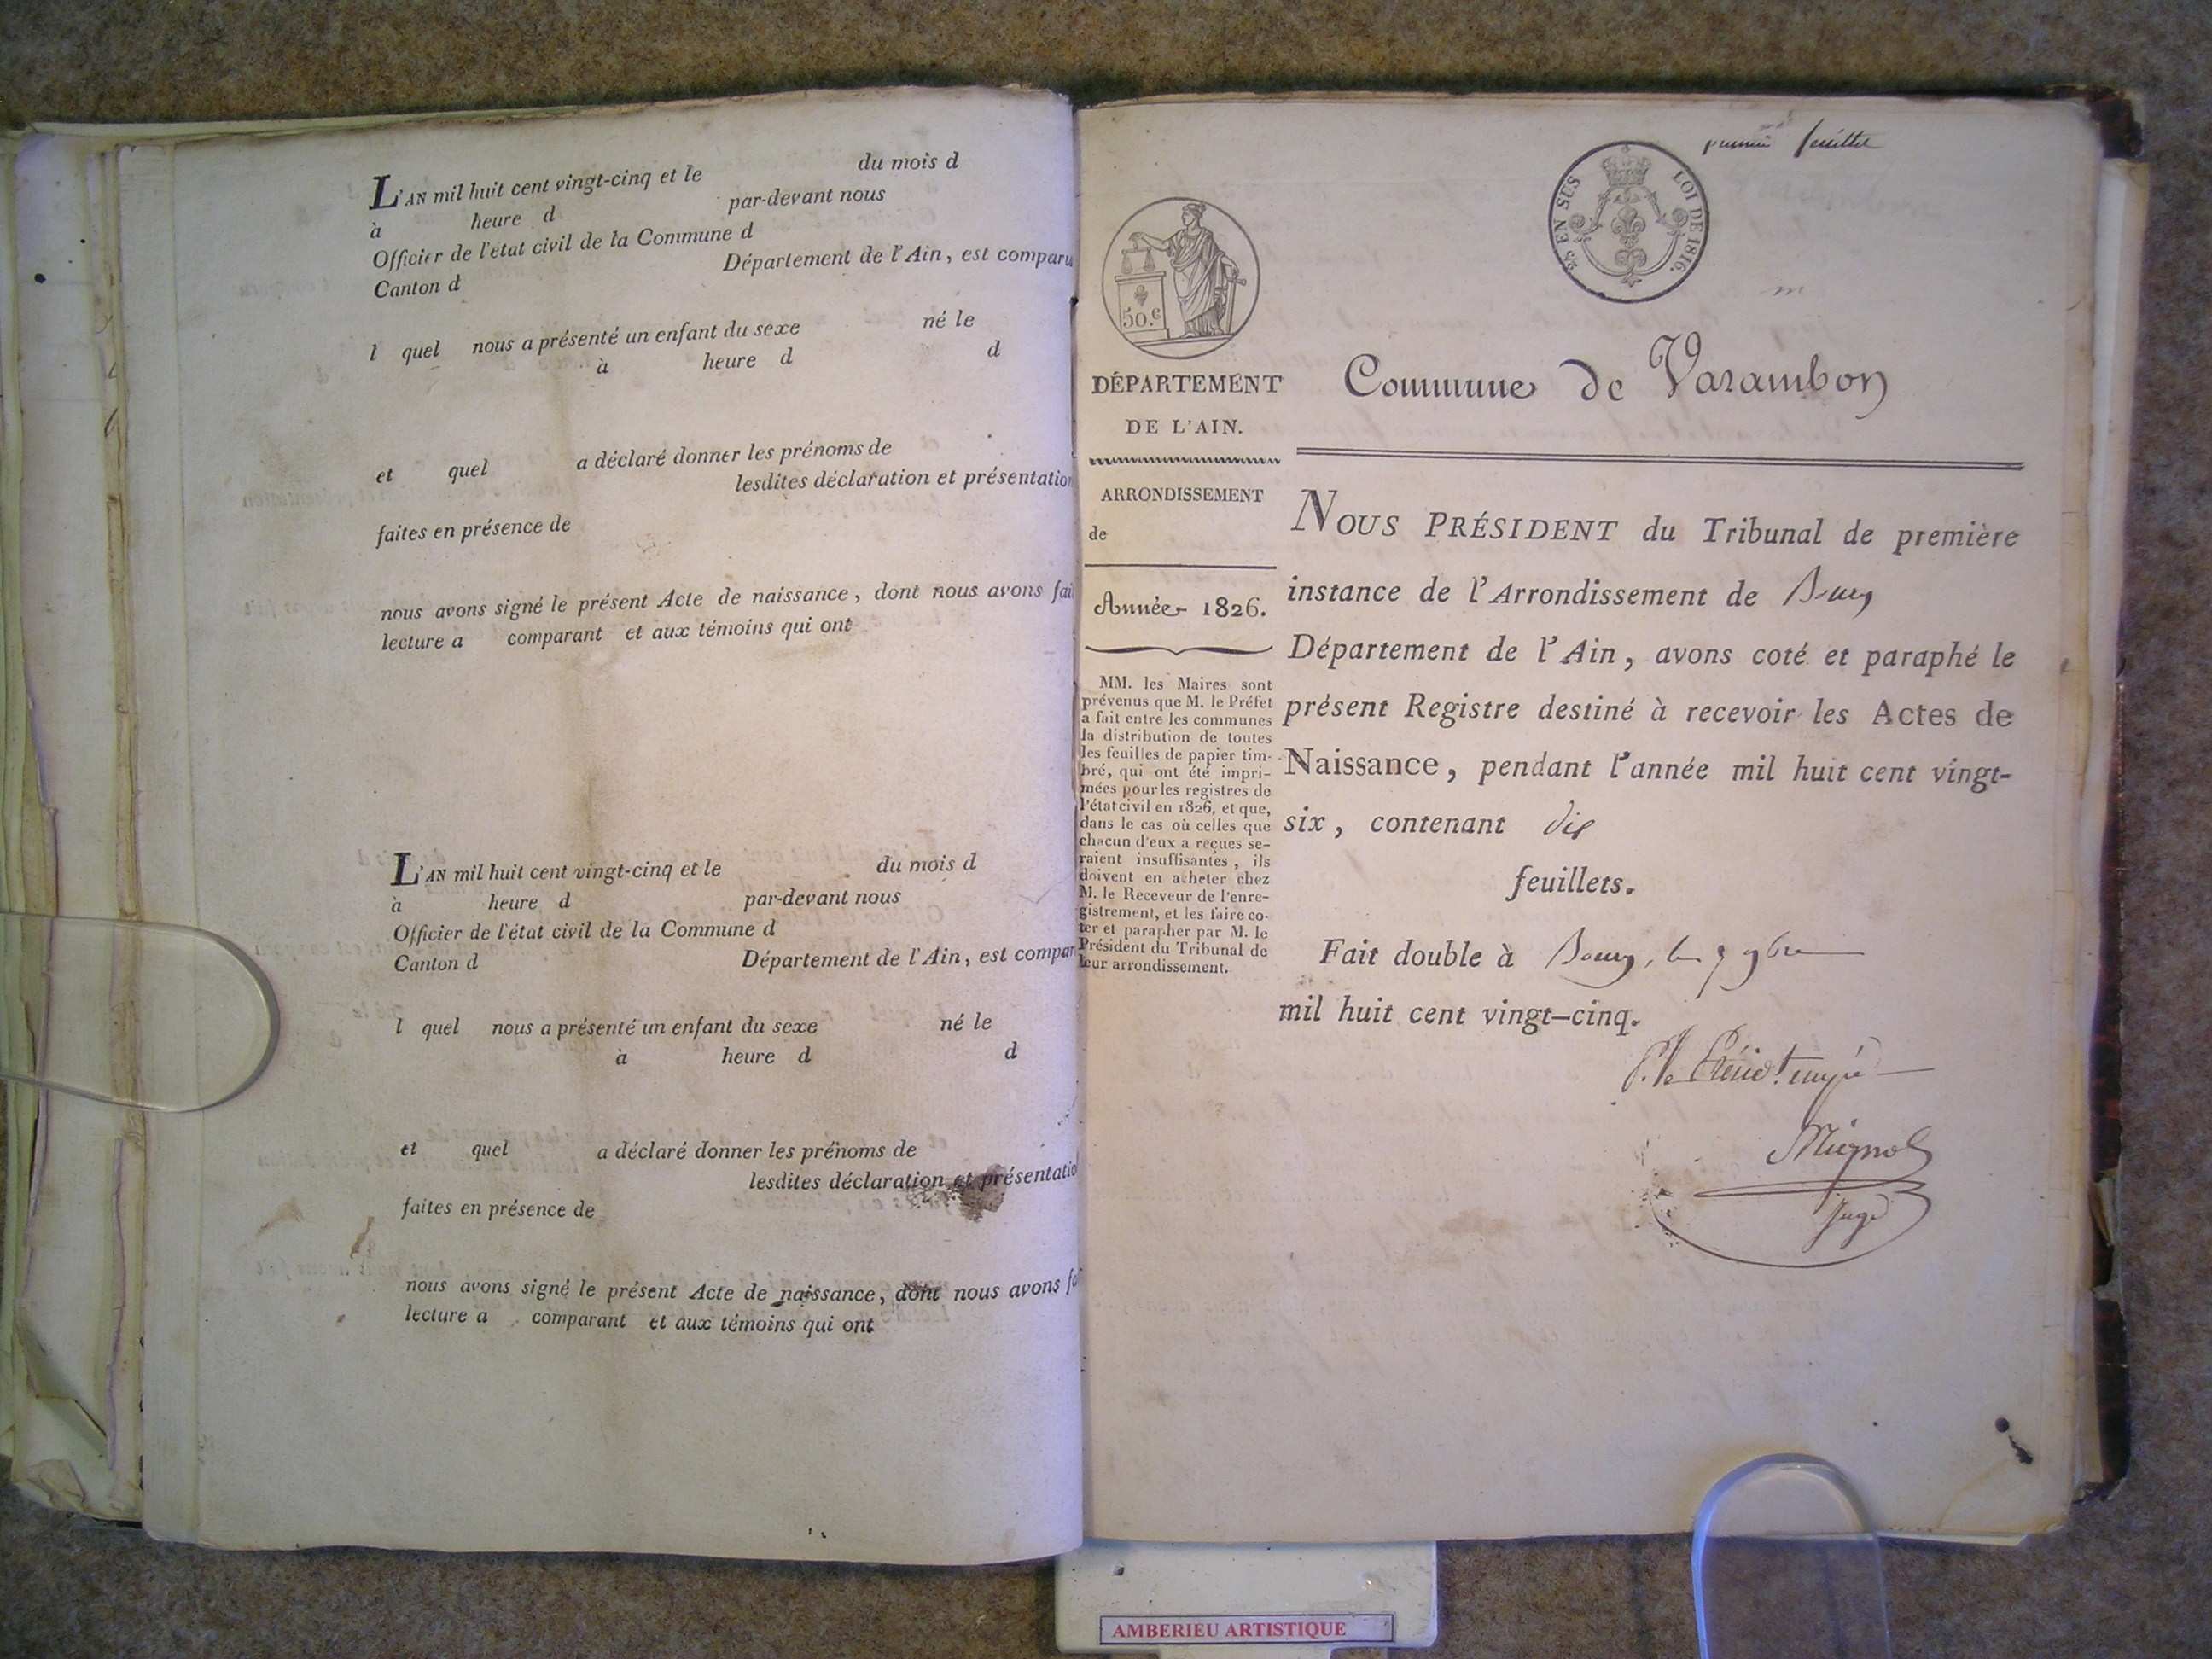 L'AN mil huit cent vingt-cinq et le du mois d
à heure d par-devant nous
Officier de l'état civil de la Commune d
Canton d Département de l'Ain, est comparu
l quel nous a présenté un enfant du sexe né le
à heure d d
et quel a déclaré donner les prénoms de
lesdites déclaration et présentation
faites en présence de
nous avons signé le présent Acte de naissance, dont nous avons fait
lecture a comparant et aux témoins qui ont
L'AN mil huit cent vingt-cinq et le du mois d
à heure d par-devant nous
Officier de l'état civil de la Commune d
Canton d Département de l'Ain, est compar
l quel nous a présenté un enfant du sexe né le
à heure d d
et quel a déclaré donner les prénoms de
lesdites déclaration et présentatio
faites en présence de
nous avons signé le présent Acte de naissance, dont nous avons fa
lecture a comparant et aux témoins qui ont
premier feuillet
25 EN SUS LOI DE 1816.
50.c
DÉPARTEMENT
DE L'AIN.
ARRONDISSEMENT
de
Année 1826.
MM. les Maires sont
prévenus que M. le Préfet
a fait entre les communes
la distribution de toutes
les feuilles de papier tim-
bré, qui ont été impri-
mées pour les registres de
l'état civil en 1826, et que,
dans le cas où celles que
chacun d'eux a reçues se-
raient insuffisantes, ils
doivent en acheter chez
M. le Receveur de l'enre-
gistrement, et les faire co-
ter et parapher par M. le
Président du Tribunal de
leur arrondissement.
Commune de Varambon
NOUS PRÉSIDENT du Tribunal de première
instance de l'Arrondissement de Bourg
Département de l'Ain, avons coté et paraphé le
présent Registre destiné à recevoir les Actes de
Naissance, pendant l'année mil huit cent vingt-
six, contenant dix
feuillets.
Fait double à Bourg, le 9bre
mil huit cent vingt-cinq.
P. le Présidt
Mignot
Juge
AMBERIEU ARTISTIQUE